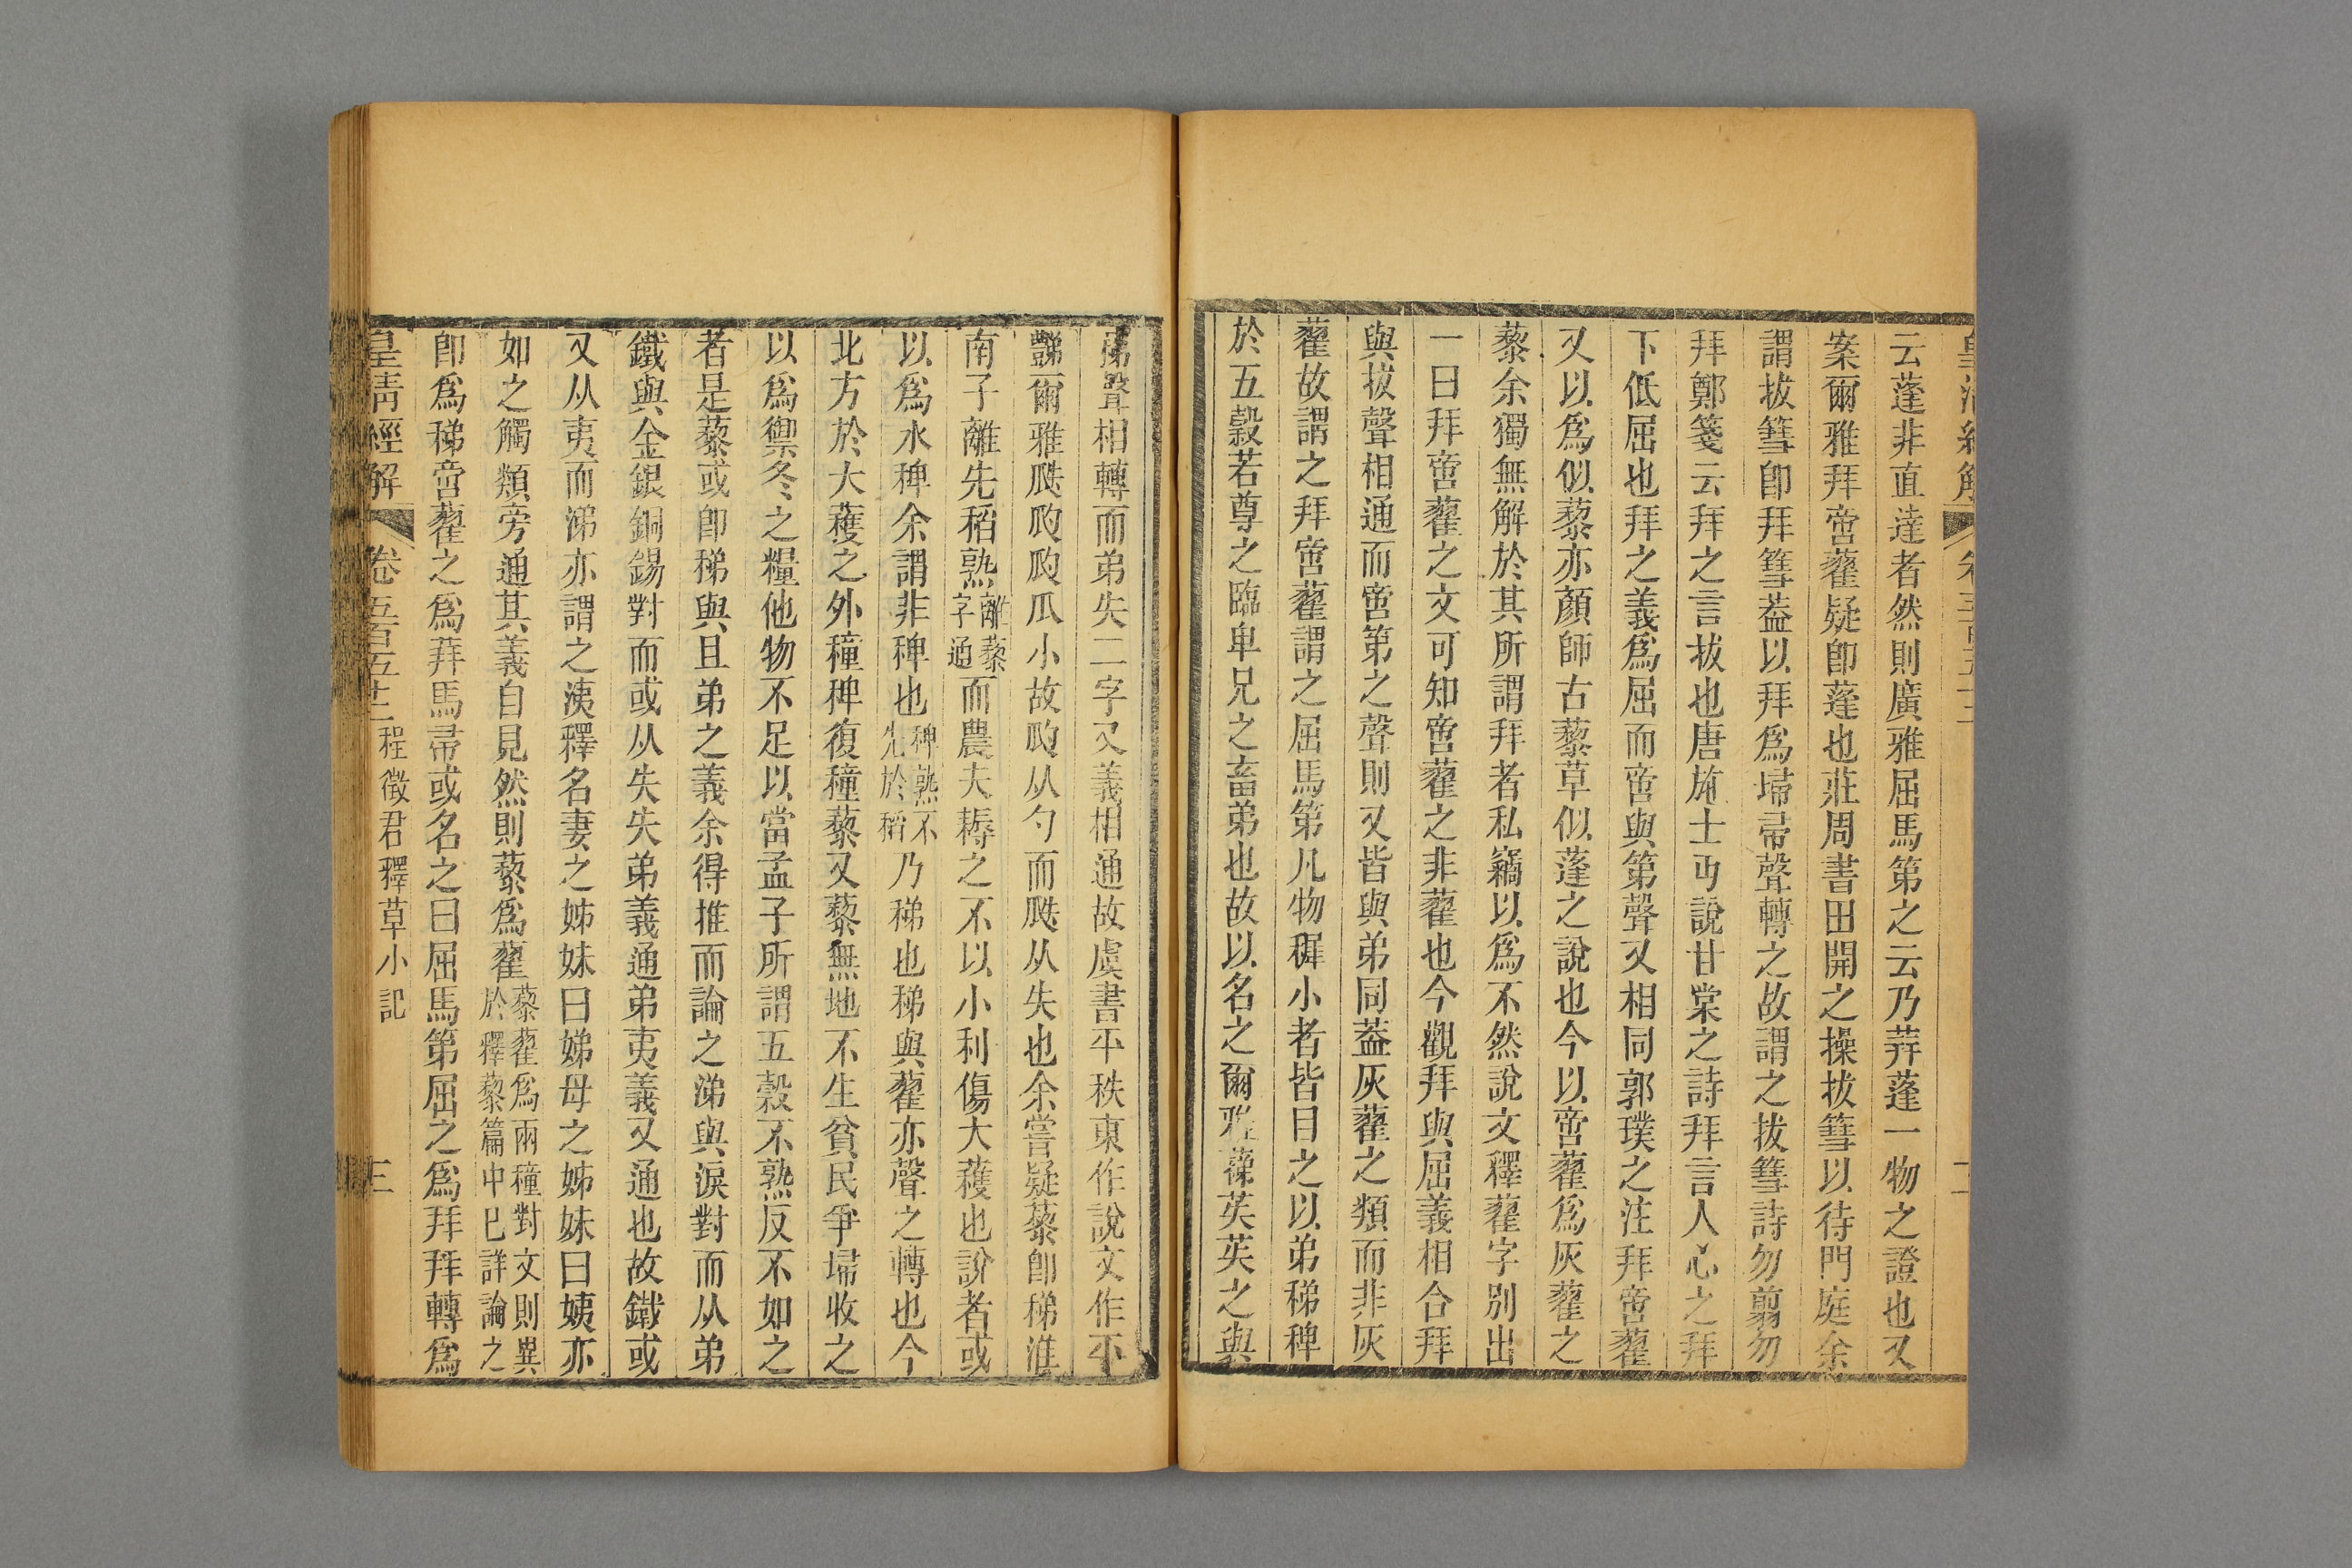 云蓬非直達者然則廣雅屈馬第之云乃茾蓬一物之證也又
案爾雅拜蔏藋疑卽蓬也莊周書田開之操拔篲以待門庭余
謂拔篲卽拜篲葢以拜爲埽帚聲轉之故謂之拔篲詩勿翦勿
拜鄭箋云拜之言拔也唐施士丐說甘棠之詩拜言人心之拜
下低屈也拜之義爲屈而蔏與第聲又相同郭璞之注拜蔏藋
又以爲似藜亦顏師古藜草似蓬之說也今以蔏藋爲灰藋之
藜余獨無解於其所謂拜者私竊以爲不然說文釋藋字別出
一曰拜蔏藋之文可知蔏藋之非藋也今觀拜與屈義相合拜
與拔聲相通而蔏第之聲則又皆與弟同葢灰藋之類而非灰
藋故謂之拜蔏藋謂之屈馬第凡物穉小者皆目之以弟稊稗
於五穀若尊之臨卑兄之畜弟也故以名之爾雅蕛苵苵之與
弟聲相轉而弟失二字又義相通故虞書平秩東作說文作
爾雅瓞瓝瓝瓜小故瓝从勺而瓞从失也余嘗疑藜卽稊淮
南子離先稻熟離藜字通而農夫耨之不以小利傷大穫也說者或
以爲水稗余謂非稗也稗熟不先於稻乃稊也稊與藋亦聲之轉也今
北方於大穫之外穜稗復穜藜又藜無地不生貧民爭埽收之
以爲禦冬之糧他物不足以當孟子所謂五穀不熟反不如之
者是藜或卽稊與且弟之義余得推而論之涕與淚對而从弟
鐵與金銀銅錫對而或从失失弟義通弟夷義又通也故鐵或
又从夷而涕亦謂之洟釋名妻之姊妹曰娣母之姊妹曰姨亦
如之觸類旁通其義自見然則藜爲藋藜藋爲兩穜對文則異於釋藜篇中已詳論之
卽爲稊蔏藋之爲茾馬帚或名之曰屈馬第屈之爲拜拜轉爲
皇清經解 卷五百五十三 程徵君釋草小記 三